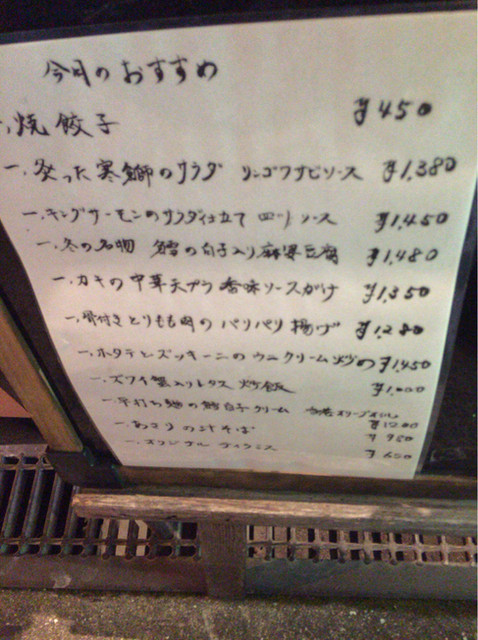 今月のおすすめ
一、焼餃子 ¥450
一、炙った寒鰤のサラダ リンゴワサビソース ¥1,380
一、キングサーモンのサラダ仕立て 四川ソース ¥1,450
一、冬の名物 鱈の白子入り麻婆豆腐 ¥1,480
一、カキの中華天プラ 香味ソースがけ ¥1,350
一、骨付きとりもも肉のパリパリ揚げ ¥1,280
一、ホタテとズッキーニのウニクリーム炒め ¥1,450
一、ズワイ蟹入りレタス炒飯 ¥1,000
一、平打ち麺の鱈白子クリーム ¥1200
一、あさりの汁そば ¥950
一、オリジナル ティラミス ¥650